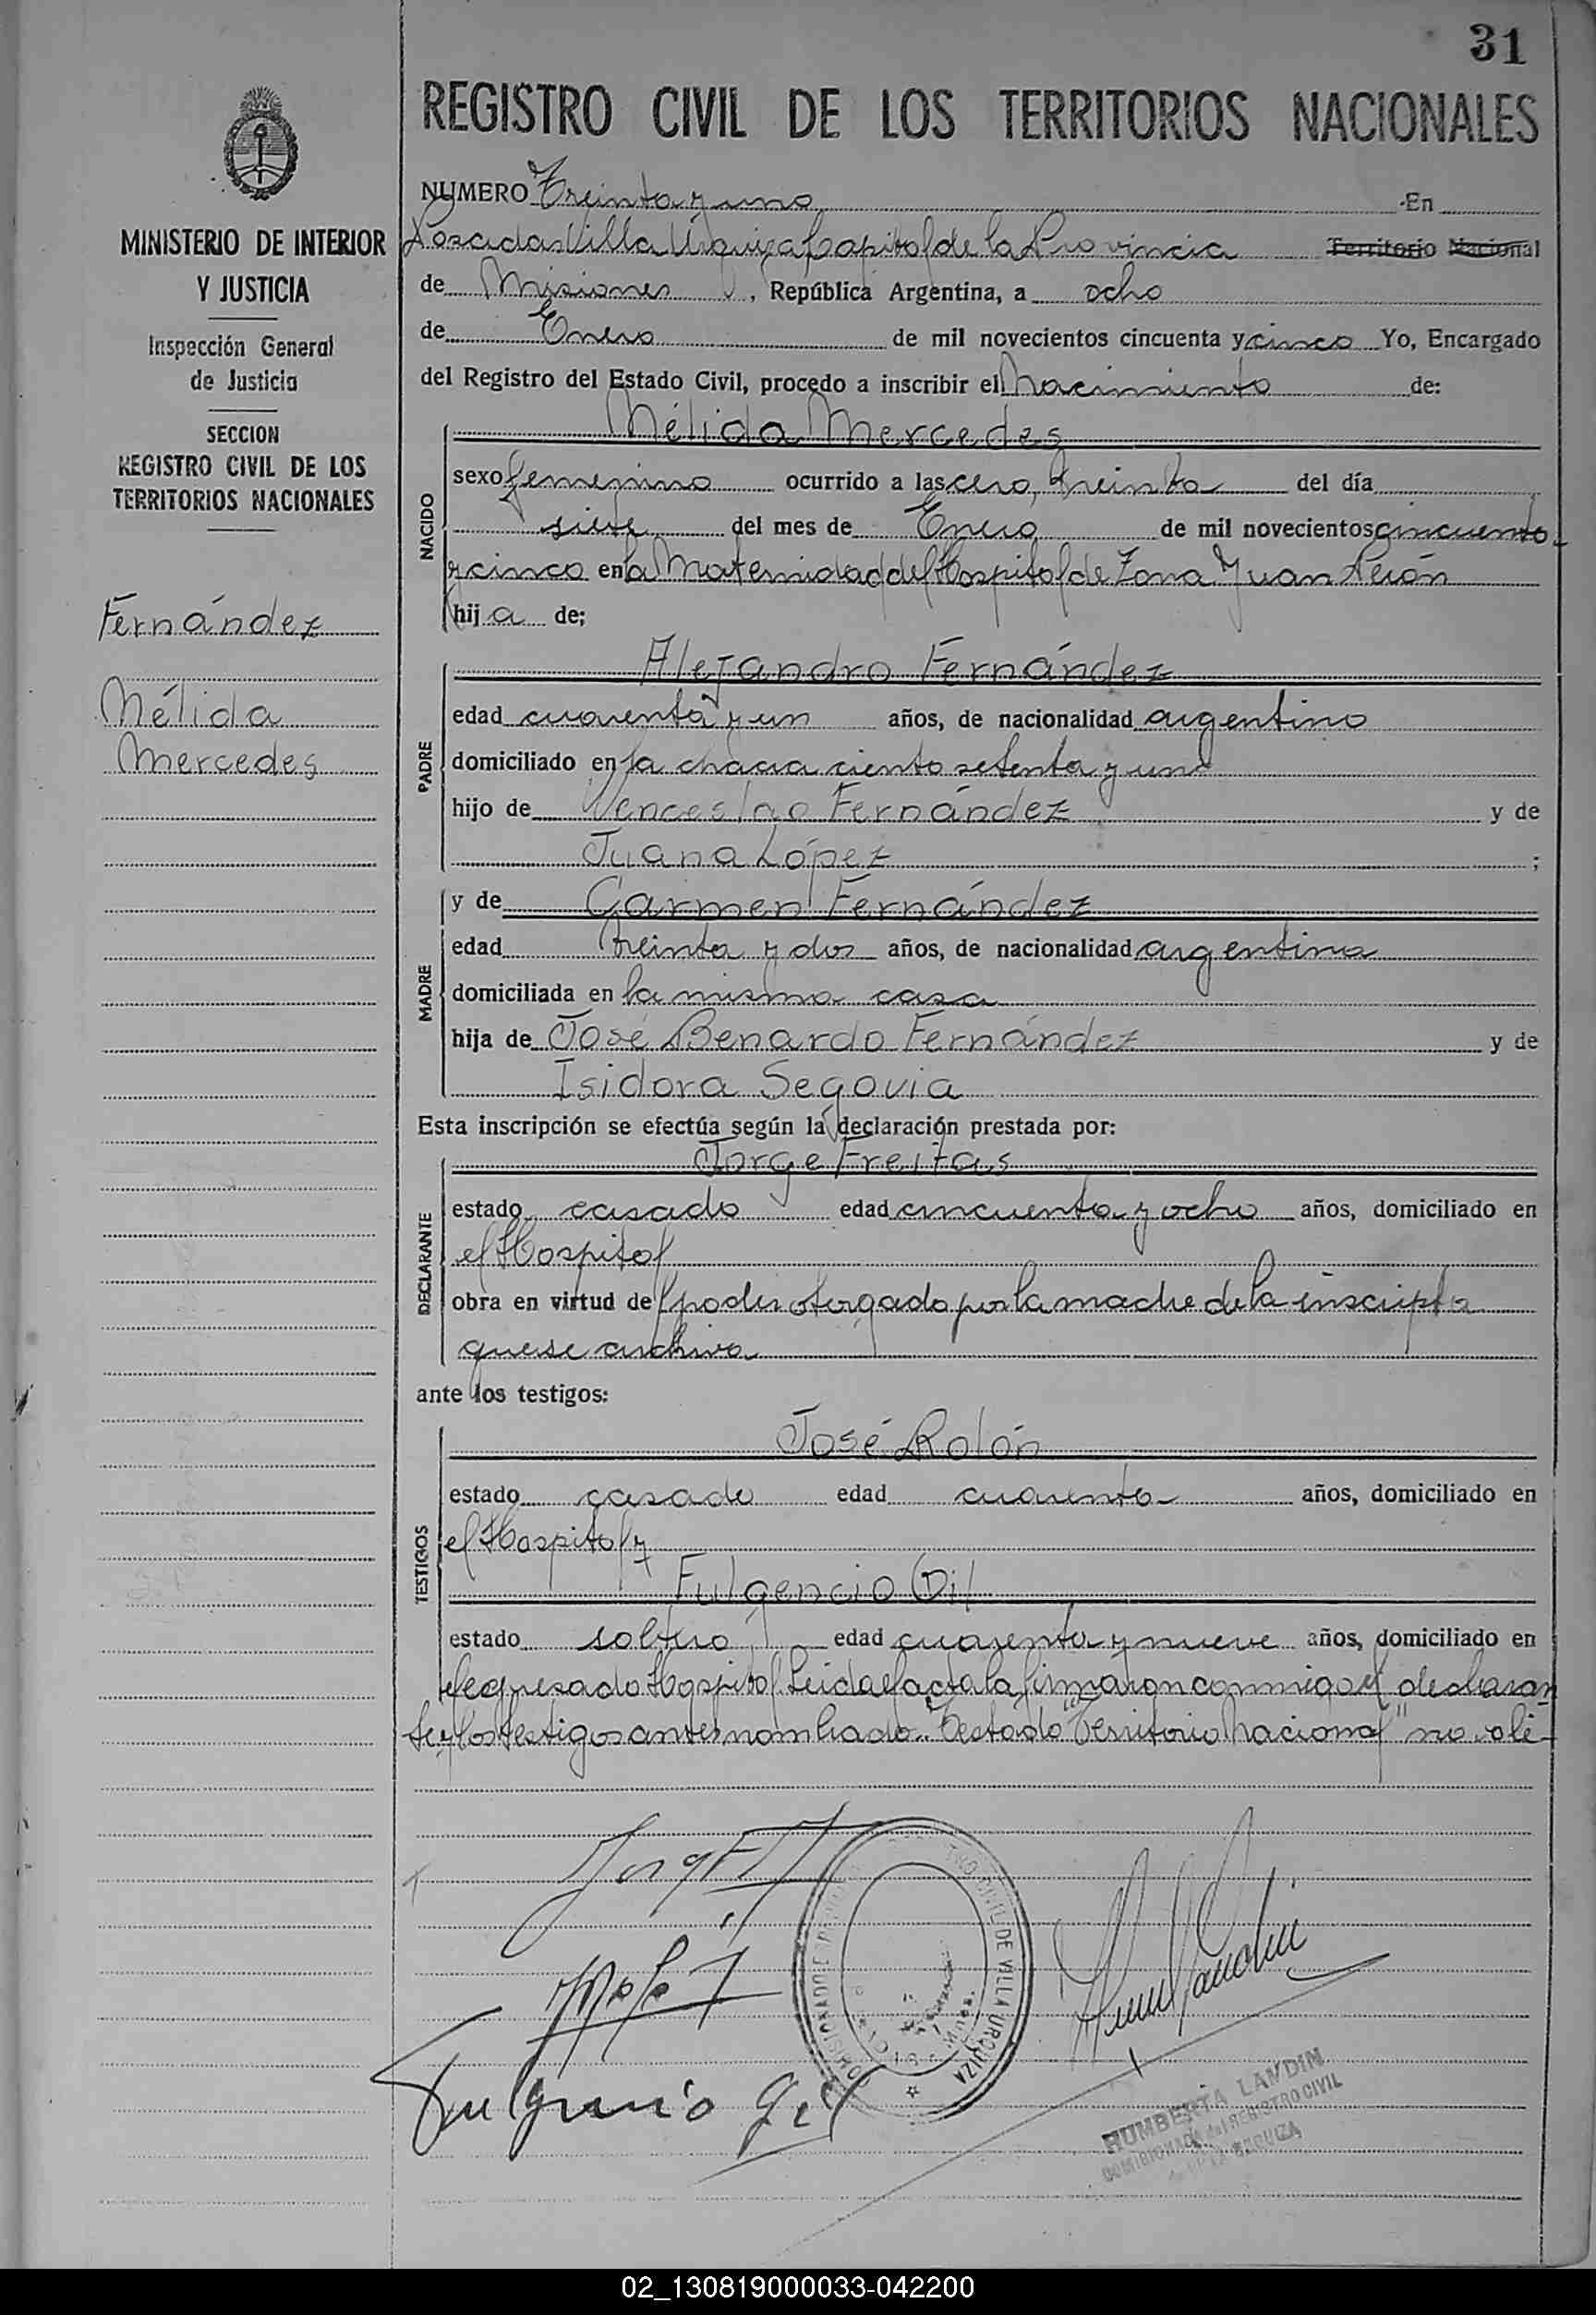 31
REGISTRO CIVIL DE LOS TERRITORIOS NACIONALES
MINISTERIO DE INTERIOR
Y JUSTICIA
Inspección General
de Justicia
SECCION
REGISTRO CIVIL DE LOS
TERRITORIOS NACIONALES
Fernández
Mélida
Mercedes
NUMERO Treinta y uno En
Posadas Villa Urquiza Capital de la Provincia Territorio Nacional
de Misiones, República Argentina, a ocho
de Enero de mil novecientos cincuenta y cinco Yo, Encargado
del Registro del Estado Civil, procedo a inscribir el Nacimiento de:
Mélida Mercedes
NACIDO
sexo femenino ocurrido a las cero, treinta del día
siete del mes de Enero de mil novecientos cincuenta
y cinco en la Maternidad del Hospital de Zona Juan Perón
hija de;
Alejandro Fernández
PADRE
edad cuarenta y un años, de nacionalidad argentino
domiciliado en la chacra ciento setenta y uno
hijo de Venceslao Fernández y de
Juana López ;
y de Carmen Fernández
MADRE
edad treinta y dos años, de nacionalidad argentina
domiciliada en la misma casa
hija de José Benardo Fernández y de
Isidora Segovia
Esta inscripción se efectúa según la declaración prestada por:
Jorge Freitas
DECLARANTE
estado casado edad cincuenta y ocho años, domiciliado en
el Hospital
obra en virtud del poder otorgado por la madre de la inscripta
que se archiva
ante los testigos:
José Rolón
TESTIGOS
estado casado edad cuarenta años, domiciliado en
el Hospital y
Fulgencio Gil
estado soltero edad cuarenta y nueve años, domiciliado en
el expresado Hospital. Leida el acta la firmaron conmigo el declaran
te y los testigos antes nombrado. Testado "Territorio Nacional" no vale-
Fulgencio Gil
CIVIL DE VILLA URQUIZA
HUMBERTA LANDIN
COMISIONADA del REGISTRO CIVIL
de VILLA URQUIZA
02_130819000033-042200